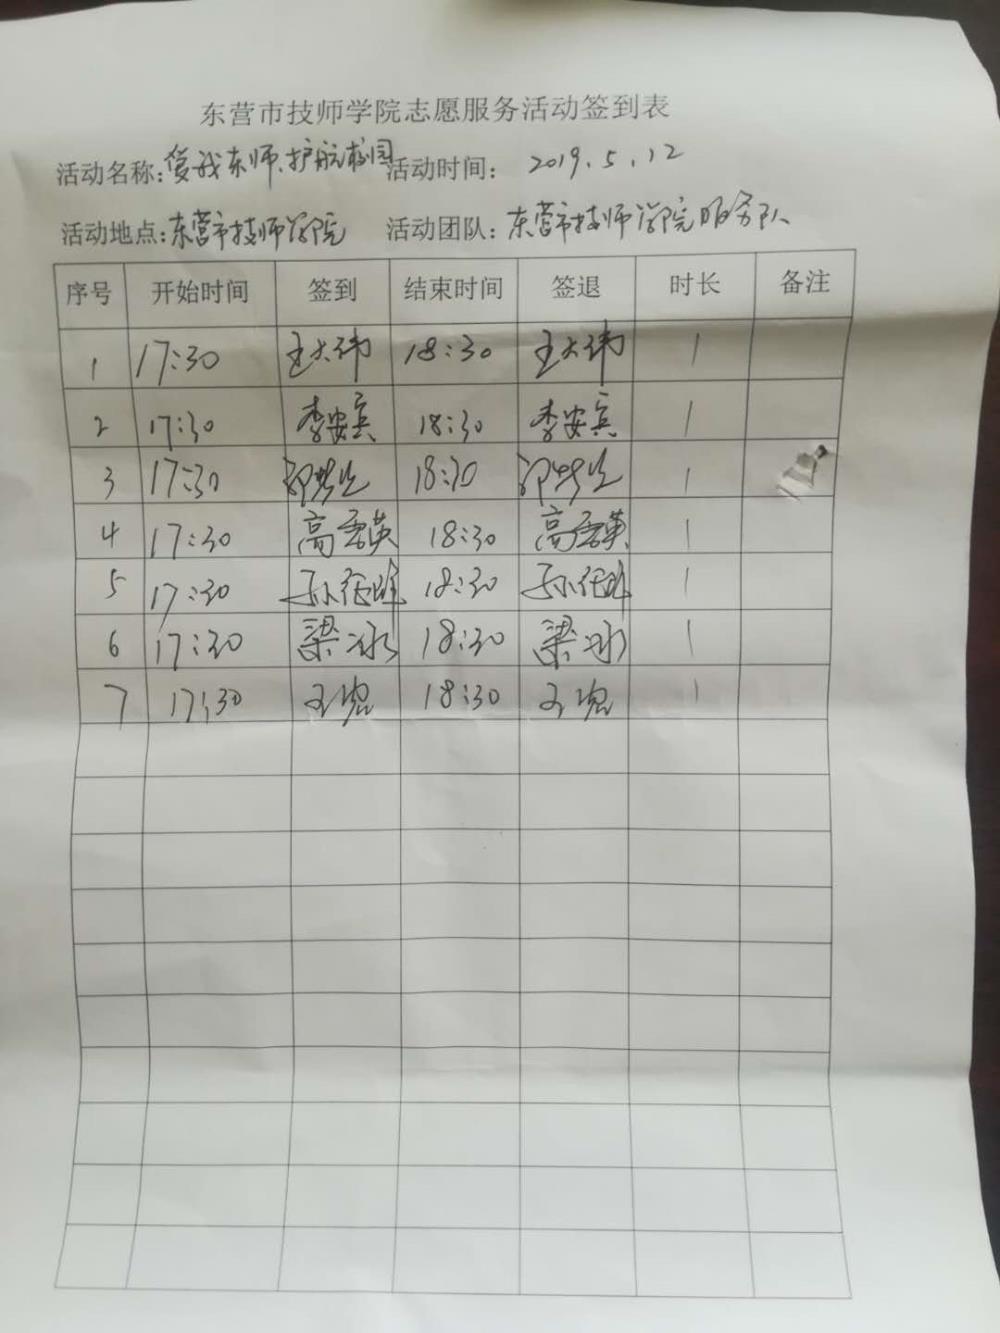 东营市技师学院志愿服务活动签到表
活动名称:爱我东师、护航校园 活动时间: 2019.5.12
活动地点:东营市技师学院 活动团队:东营市技师学院服务队
序号 开始时间 签到 结束时间 签退 时长 备注
1 17:30 王大伟 18:30 王大伟 1
2 17:30 李安宾 18:30 李安宾 1
3 17:30 18:30 1
4 17:30 高孟英 18:30 高孟英 1
5 17:30 18:30 1
6 17:30 梁冰 18:30 梁冰 1
7 17:30 18:30 1